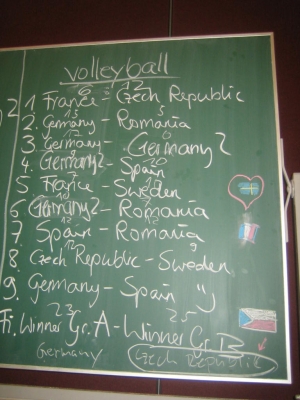 volleyball
6 12
1 France - Czech Republic
13 5
2. Germany - Romania
3. Germany - Germany 2
4. Germany 2 - Spain
5 France - Sweden
6 Germany 2 - Romania
7 Spain - Romania
8. Czech Republic - Sweden
9. Germany - Spain
23 25
Fi. Winner Gr. A - Winner Gr. B
Germany Czech Republic